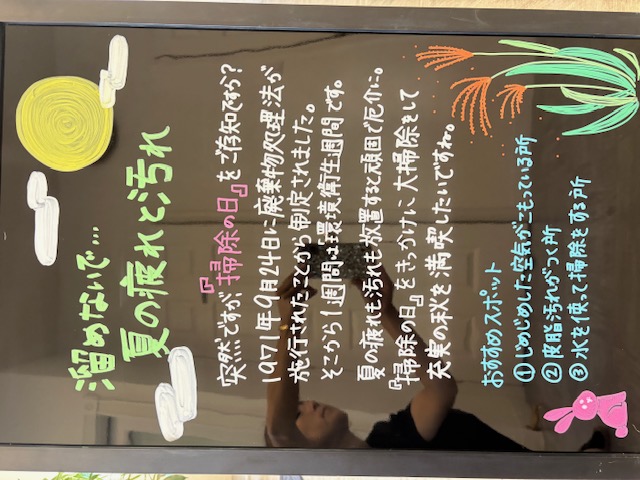 溜めないで…
夏の疲れと汚れ
突然ですが、『掃除の日』をご存知ですか？
1971年9月24日に廃棄物処理法が
施行されたことから制定されました。
そこから1週間は環境衛生週間です。
夏の疲れも汚れも放置すると頑固で厄介に。
『掃除の日』をきっかけに大掃除をして
充実の秋を満喫したいですね。
おすすめスポット
①じめじめした空気がこもっている所
②皮脂汚れがつく所
③水を使って掃除をする所